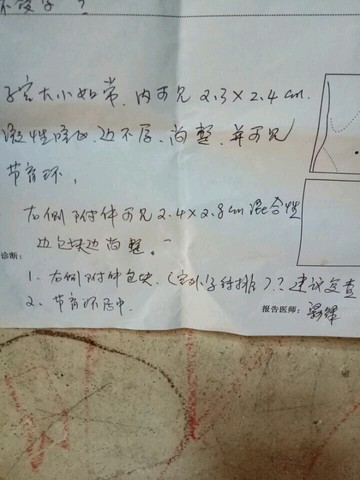 子宫大小如常,内可见2.3×2.4cm
混合性 边 尚整,并可见
节育环。
右侧附件可见2.4×2.8cm混合性
包块边尚整。
诊断:
1. 右侧附件包块。(宫外孕待排)?建议复查
2. 节育环居中.
报告医师: